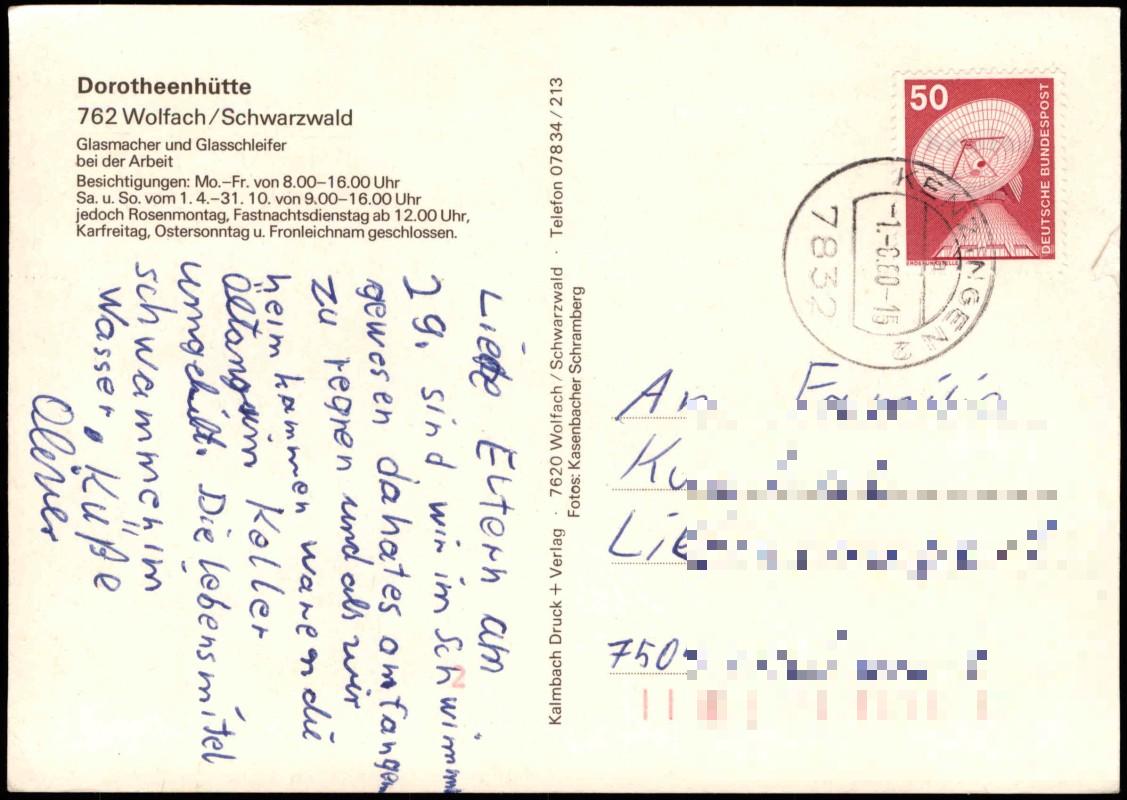 Dorotheenhütte
762 Wolfach/Schwarzwald
Glasmacher und Glasschleifer
bei der Arbeit
Besichtigungen: Mo.–Fr. von 8.00–16.00 Uhr
Sa. u. So. vom 1. 4.–31. 10. von 9.00–16.00 Uhr
jedoch Rosenmontag, Fastnachtsdienstag ab 12.00 Uhr,
Karfreitag, Ostersonntag u. Fronleichnam geschlossen.
Liebe Eltern am
29. sind wir im Schwimm
gewesen da hates anfangen
zu regnen und als wir
heim kammen waren die
Öltang im Keller
umgekibt. Die lebensmitel
schwammen im
Wasser. Küße
Oliver
Kalmbach Druck + Verlag · 7620 Wolfach/Schwarzwald · Telefon 07834/213
Fotos: Kasenbacher Schramberg
50
DEUTSCHE BUNDESPOST
ERDEFUNKSTELLE
KENZINGEN 2
-1.-8.80-15
a
7832
An
750
2